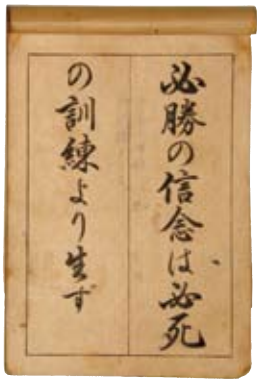 必勝の信念は必死
の訓練より生ず